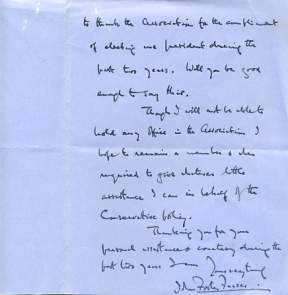 to thank the Association for the compliment
of electing me president during the
past two years. Will you be good
enough to say this.
Though I will not be able to
hold any office in the Association I
hope to remain a member & when
required to give whatever little
assistance I can in behalf of the
Conservative policy.
Thanking you for your
personal assistance & courtesy during the
past two years I am yours very truly
John